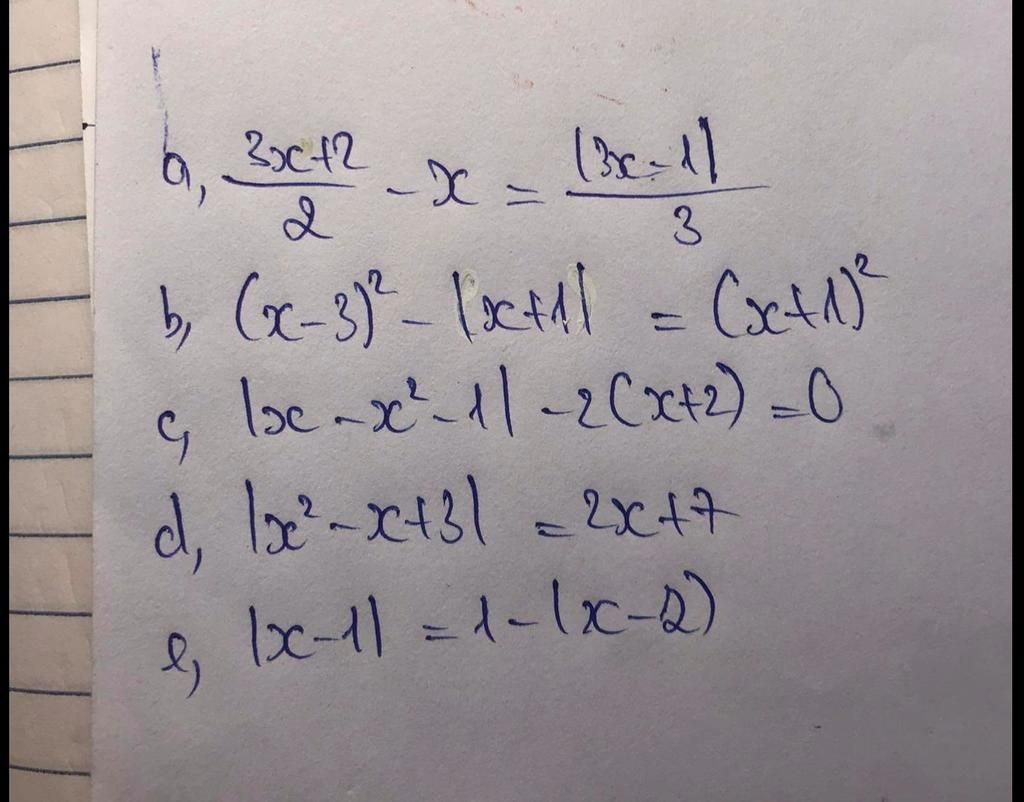 a, \frac{3x+2}{2} - x = \frac{|3x-1|}{3}
b, (x-3)² - |x+1| = (x+1)²
c, |x - x² - 1| - 2(x+2) = 0
d, |x² - x + 3| = 2x+7
e, |x-1| = 1 - (x-2)